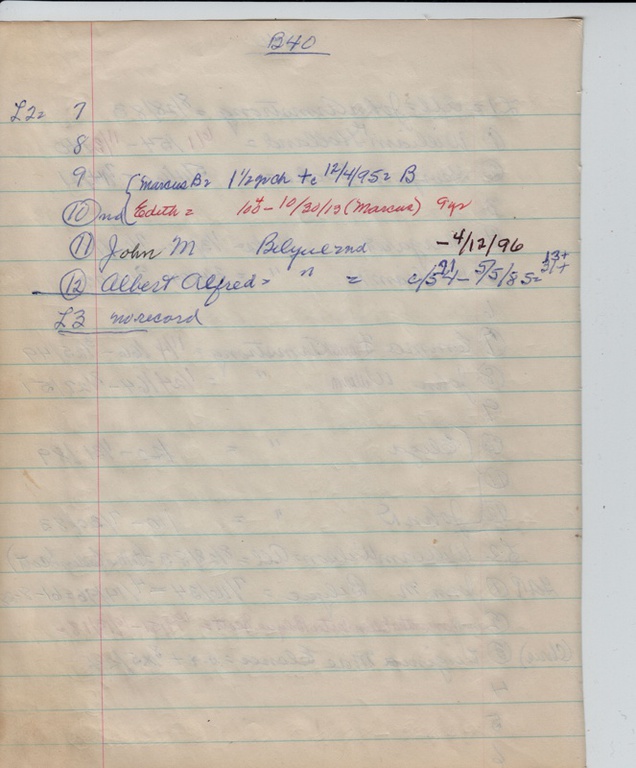 B40
L2= 7
8
9 Marcus B= 1½ inch + c 12/4/95= B
⑩ nd Edith = - 10/30/13 (Marcus) 9 yr
⑪ John M Belyue nd - 4/12/96
⑫ Albert Alfred = " = c/ - 5/5/85=
L3 no record